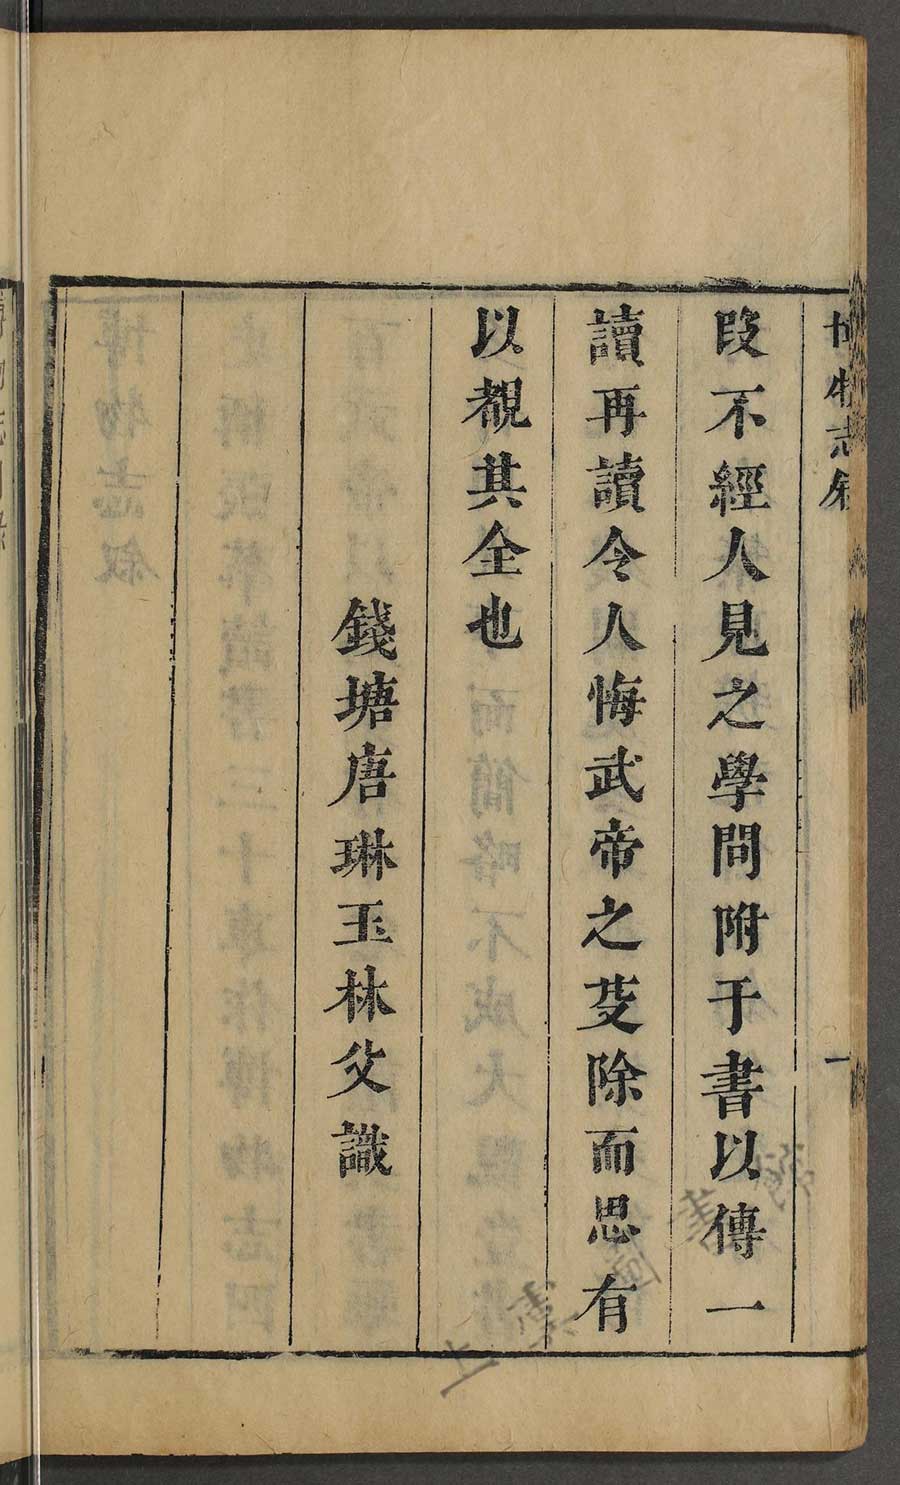 博物志叙
一
段不經人見之學問附于書以傳一
讀再讀令人悔武帝之芟除而思有
以覩其全也
錢塘唐琳玉林父識